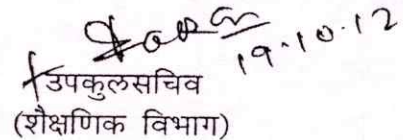 19.10.12
उपकुलसचिव
(शैक्षणिक विभाग)